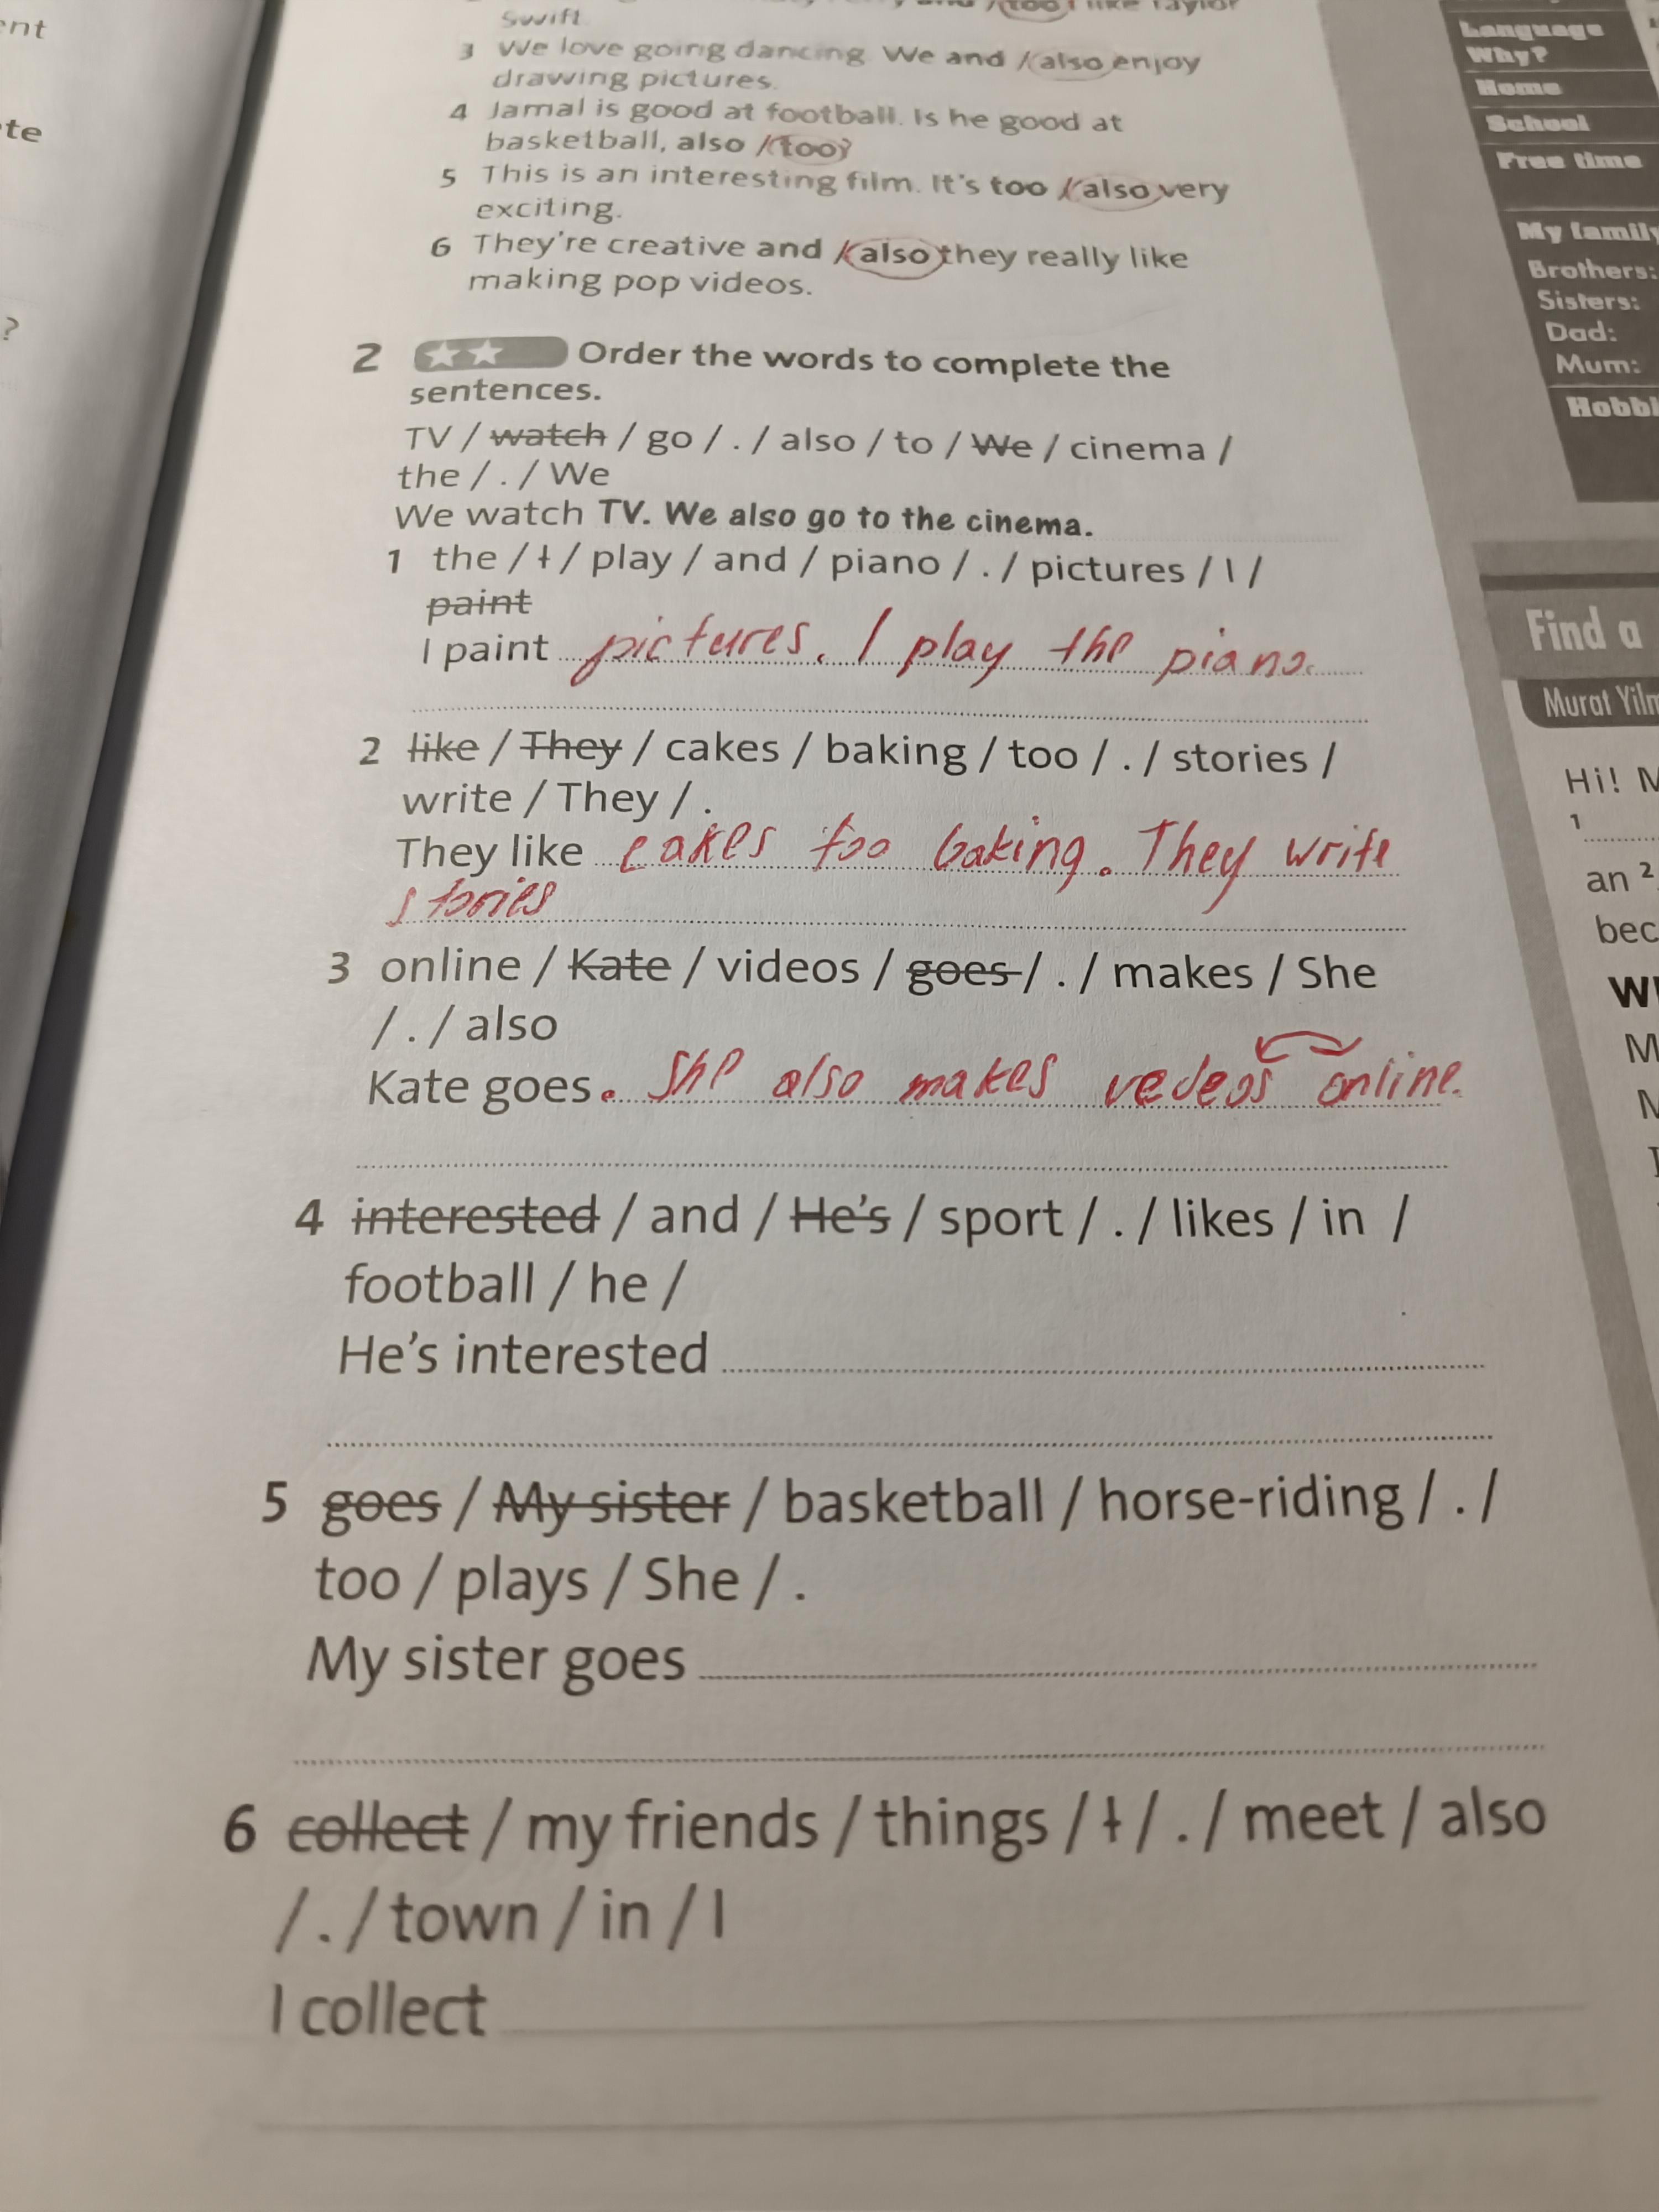 ent
te
?
too I like Taylor
Swift
3 We love going dancing. We and / also enjoy
drawing pictures.
4 Jamal is good at football. Is he good at
basketball, also / too?
5 This is an interesting film. It's too / also very
exciting.
6 They're creative and / also they really like
making pop videos.
2 Order the words to complete the
sentences.
TV / watch / go / . / also / to / We / cinema /
the / . / We
We watch TV. We also go to the cinema.
1 the / I / play / and / piano / . / pictures / I /
paint
I paint pictures. I play the piano.
2 like / They / cakes / baking / too / . / stories /
write / They / .
They like cakes too baking. They write
stories
3 online / Kate / videos / goes / . / makes / She
/ . / also
Kate goes. She also makes vedeos online.
4 interested / and / He's / sport / . / likes / in /
football / he /
He's interested
5 goes / My sister / basketball / horse-riding / . /
too / plays / She / .
My sister goes
6 collect / my friends / things / I / . / meet / also
/ . / town / in / I
I collect
Language
Why?
Home
School
Free time
My family
Brothers:
Sisters:
Dad:
Mum:
Hobbi
Find a
Murat Yilm
Hi! M
1
an 2
bec
W
M